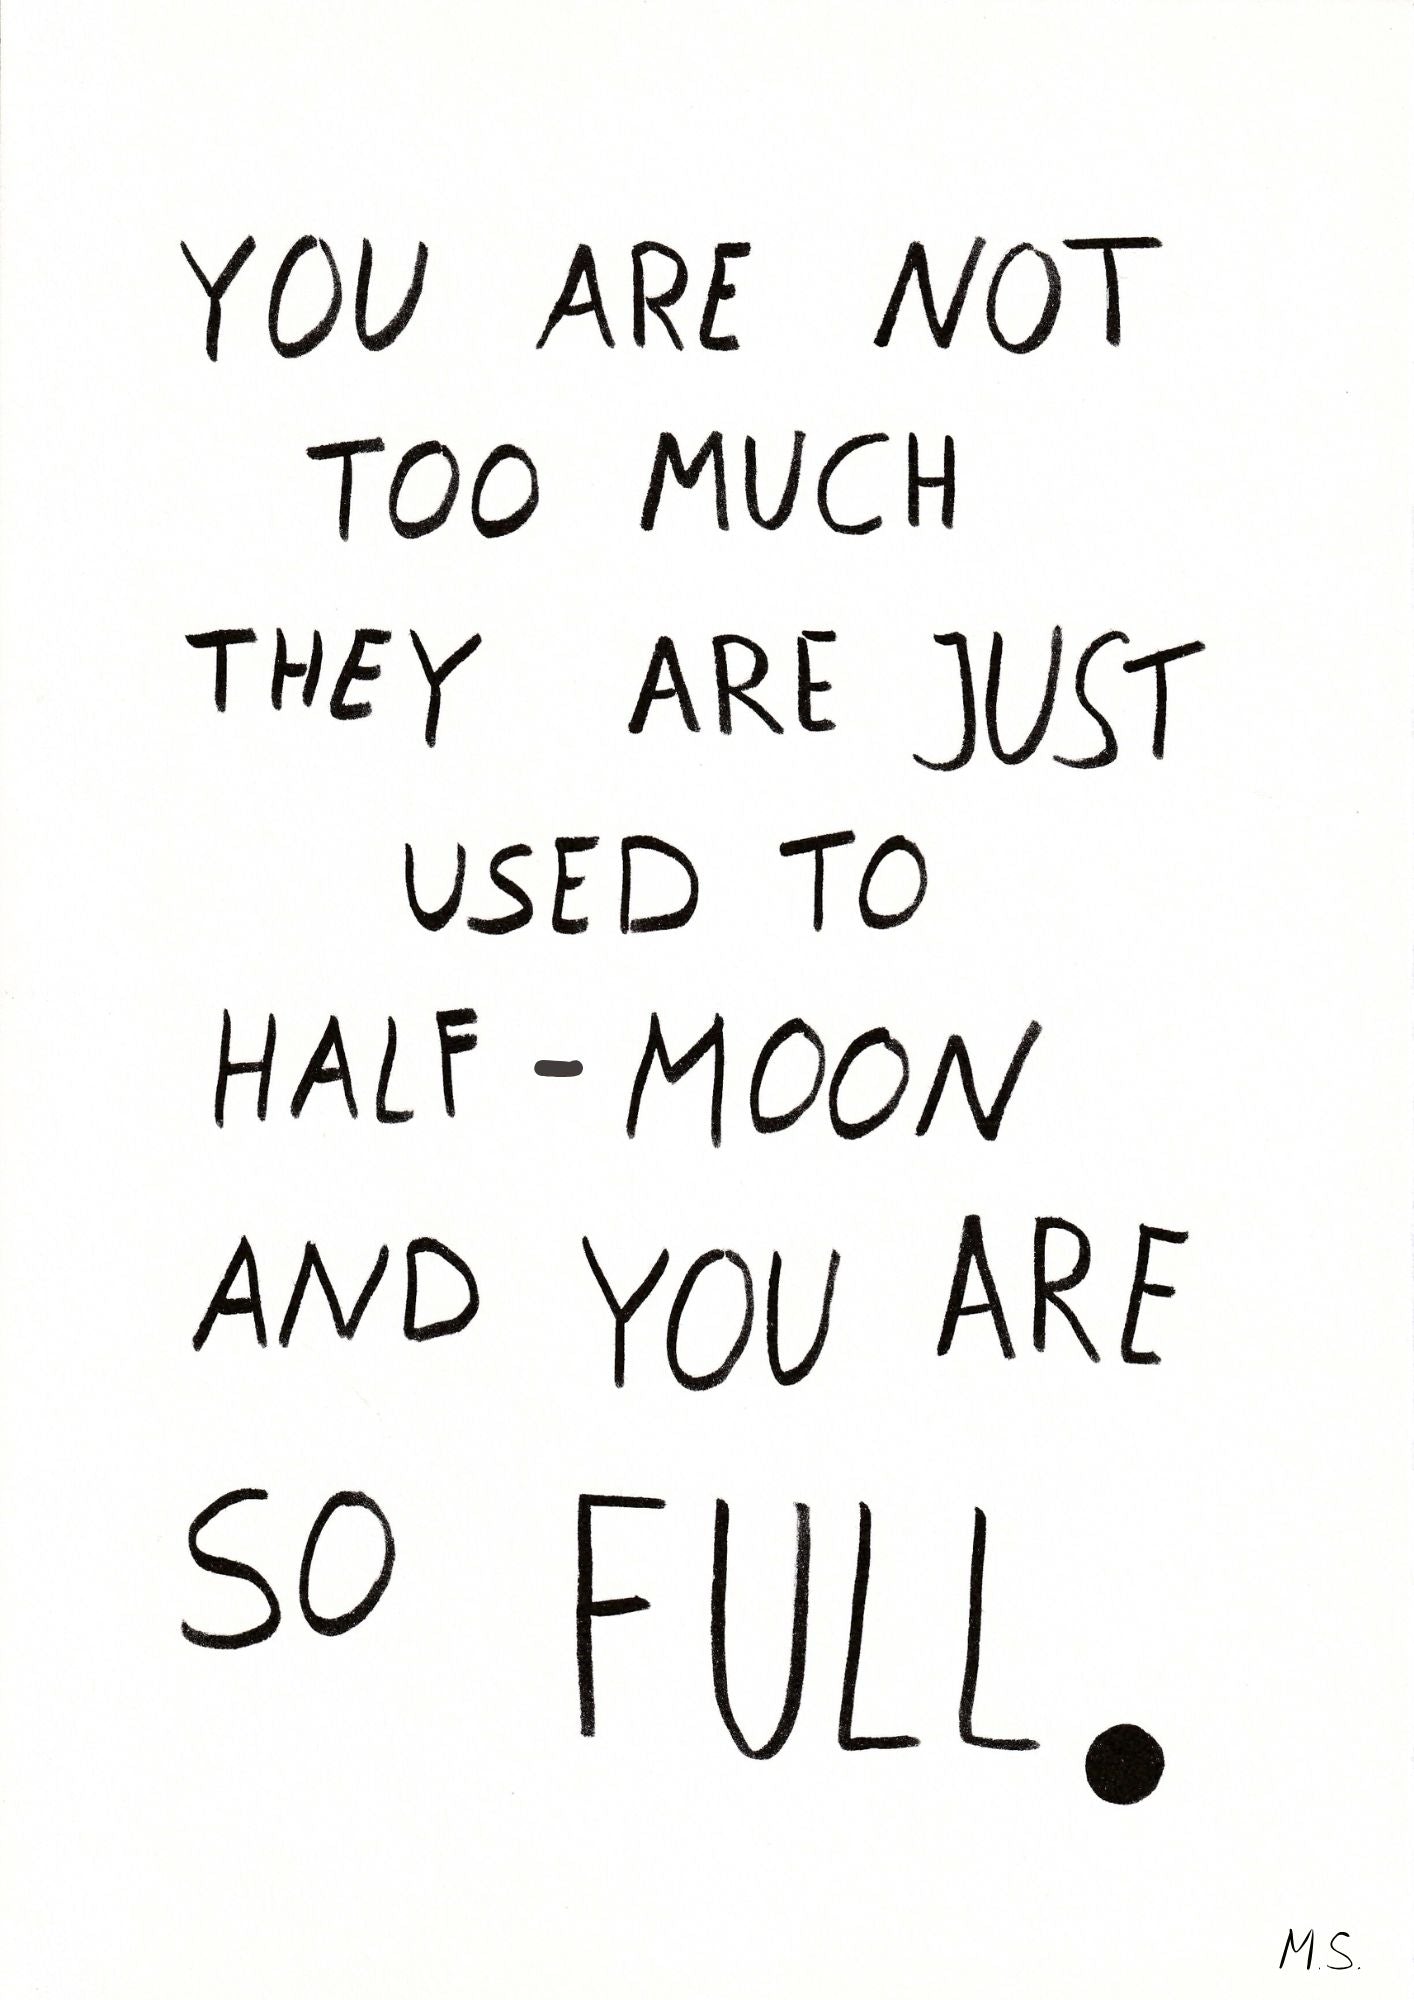 YOU ARE NOT
TOO MUCH
THEY ARE JUST
USED TO
HALF - MOON
AND YOU ARE
SO FULL.
M.S.